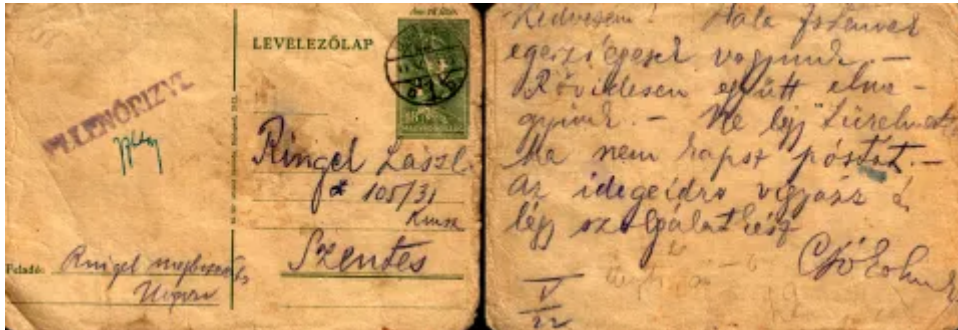 LEVELEZŐLAP
ELLENŐRIZVE
Ringel László
105/31
Szentes
Feladó: Ringel
Kedvesem! Hála Istennek
egerzségesek vagyunk. —
Rövidesen együtt elme-
gyünk. — Ne légy türelmetl
ha nem kapsz póstát. —
az idegeidre vigyázz és
légy szolgálatkész
Csókolunk
V
22